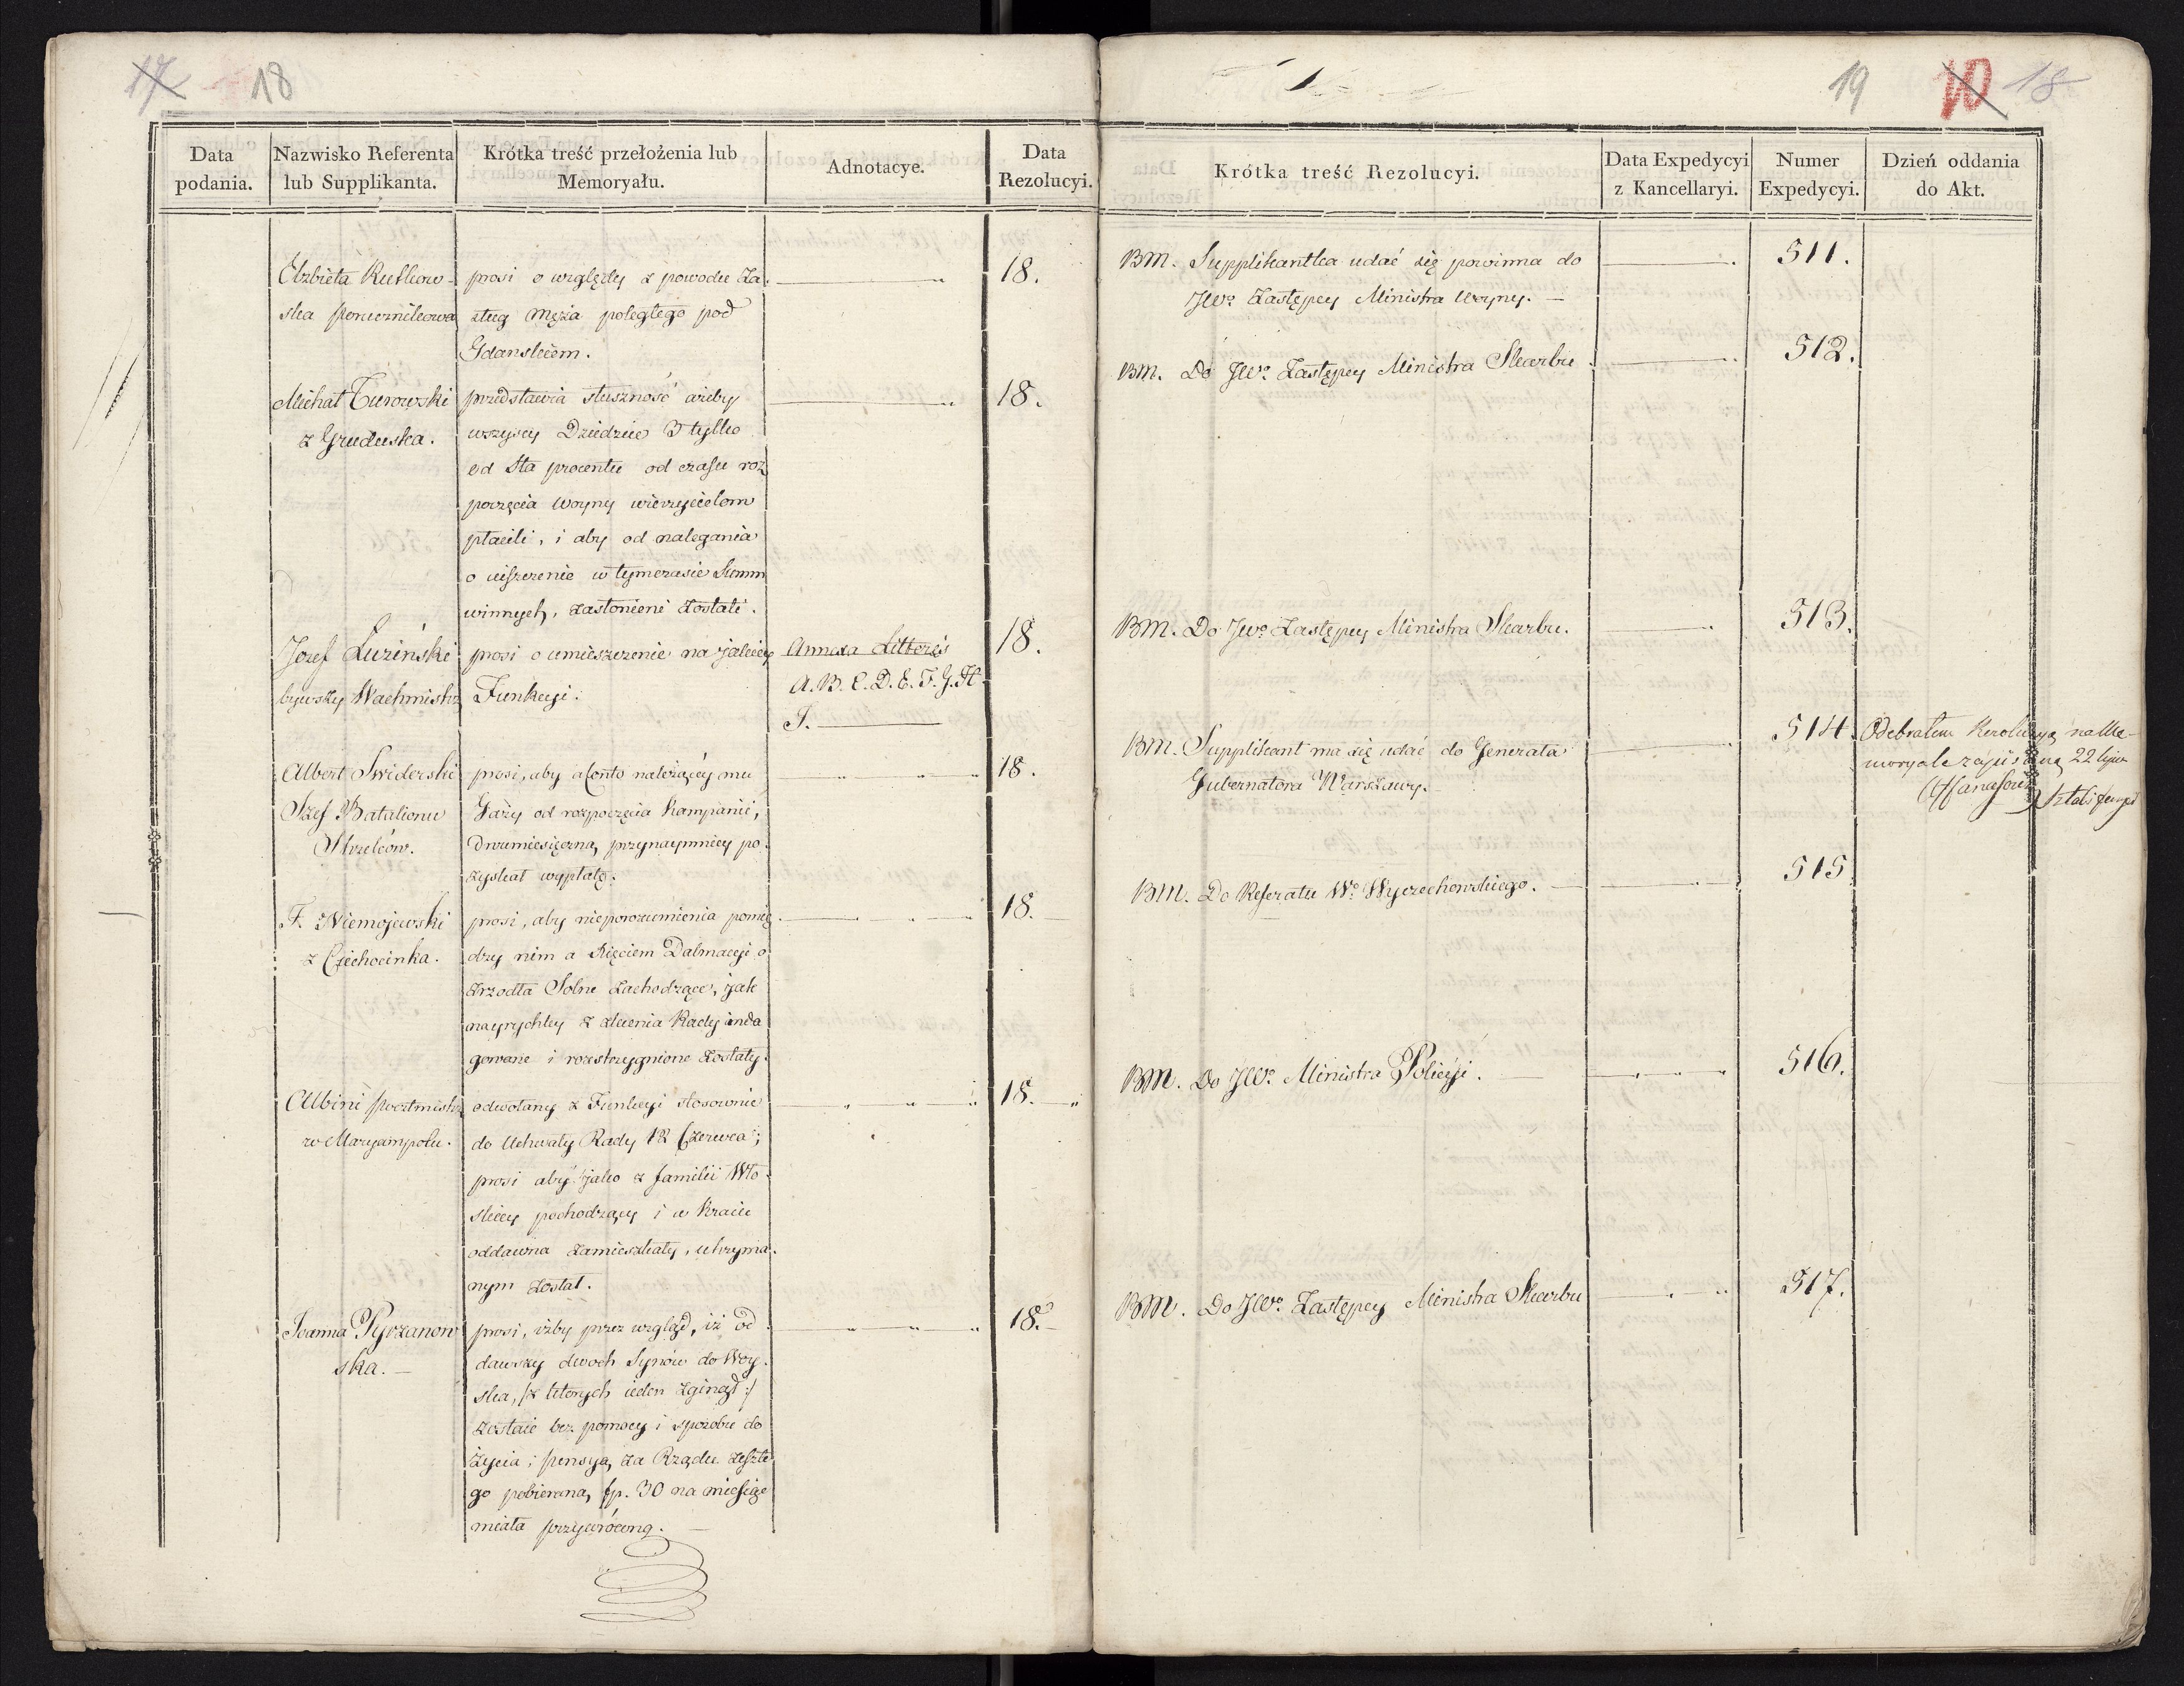 17 18
Data podania.
Nazwisko Referenta lub Supplikanta.
Krótka treść przełożenia lub Memoryału.
Adnotacye.
Data Rezolucyi.
Elżbieta Rutkow-
ska Porucznikowa
prosi o względy z powodu za-
sług Męża poległego pod
Gdanskiem.
18.
Michał Turowski
z Gruduska.
przedstawia słuszność ażeby
wszyscy Dziedzice 3 tylko
od sta procentu od czasu roz
poczęcia Woyny wierzycielom
płacili, i aby od nalegania
o uiszczenie w tymczasie Summ
winnych, zasłonieni zostali.
18.
Jozef Luziński
bywszy Wachmistrz
prosi o umieszczenie na jakiéy
Funkcyi.
Annexa Litteris
A. B. C. D. E. F. G. H
I.
18.
Albert Swiderski
Szef Batalionu
Strzelców.
prosi, aby a Conto należącéy mu
Gaży od rozpoczęcia Kampanii,
Dwumiesięczną przynaymniey po-
zyskał wypłatę.
18.
F. Niemojewski
z Ciechocinka.
prosi, aby nieporozumienia pomię-
dzy nim a Xięciem Dalmacyi o
źrzodła Solne zachodzące, jak
nayrychley z zlecenia Rady inda
gowane i rozstrzygnione zostały.
18.
Albini Pocztmistrz
w Maryampolu.
odwołany z Funkcyi stosownie
do Uchwały Rady 12 Czerwca;
prosi aby jako z familii Wło-
skiey pochodzący i w Kraiu
oddawna zamieszkały, utrzyma-
nym został.
18.
Joanna Pyrzanow
ska.
prosi, iżby przez wzgląd, iż od-
dawszy dwoch Synów do Woy-
ska, /: z ktorych ieden zginął :/
zostaie bez pomocy i sposobu do
życia; pensyą za Rządu zeszłe
go pobieraną fp. 30 na miesiąc
miała przywróconą.
18.
19 10 18
Krótka treść Rezolucyi.
Data Expedycyi z Kancellaryi.
Numer Expedycyi.
Dzień oddania do Akt.
BM. Supplikantka udać się powinna do
JWo Zastępcy Ministra Woyny.
511.
BM. Do JWo Zastępcy Ministra Skarbu
512.
BM. Do JWo Zastępcy Ministra Skarbu.
513.
BM. Supplikant ma się udać do Generała
Gubernatora Warszawy.
514.
Odebrałem Rezolucyą na Me-
moryale zapisaną 22 lipca
BM. Do Referatu Wo Wyczechowskiego.
515
BM. Do JWo Ministra Policyi.
516.
BM. Do JWo Zastępcy Ministra Skarbu
517.